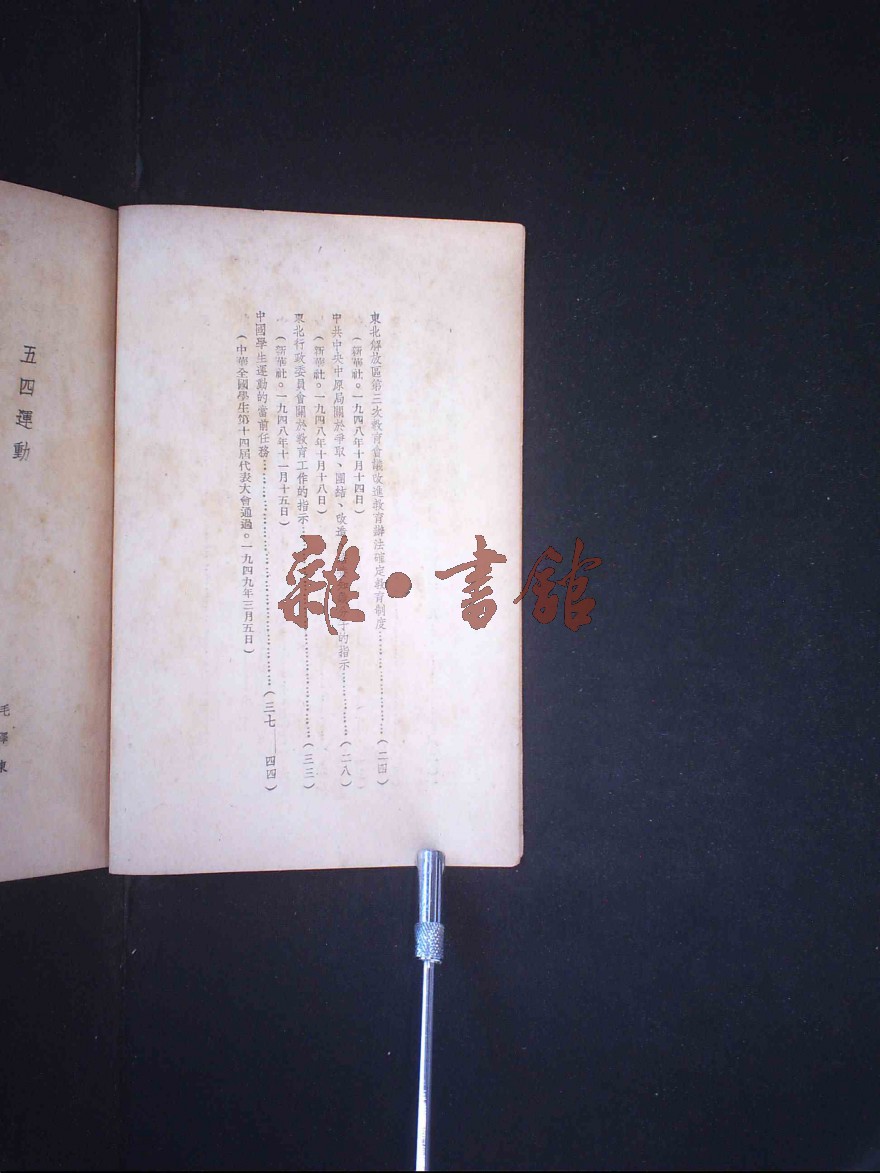 東北解放區第三次教育會議改進教育辦法確定教育制度……(二四)
(新華社。一九四八年十月十四日)
中共中央中原局關於爭取、團結、改造 的指示……(二八)
(新華社。一九四八年十月十八日)
東北行政委員會關於教育工作的指示……(三三)
(新華社。一九四八年十一月十五日)
中國學生運動的當前任務……(三七——四四)
(中華全國學生第十四屆代表大會通過。一九四九年三月五日)
五四運動
毛澤東
雜·書館